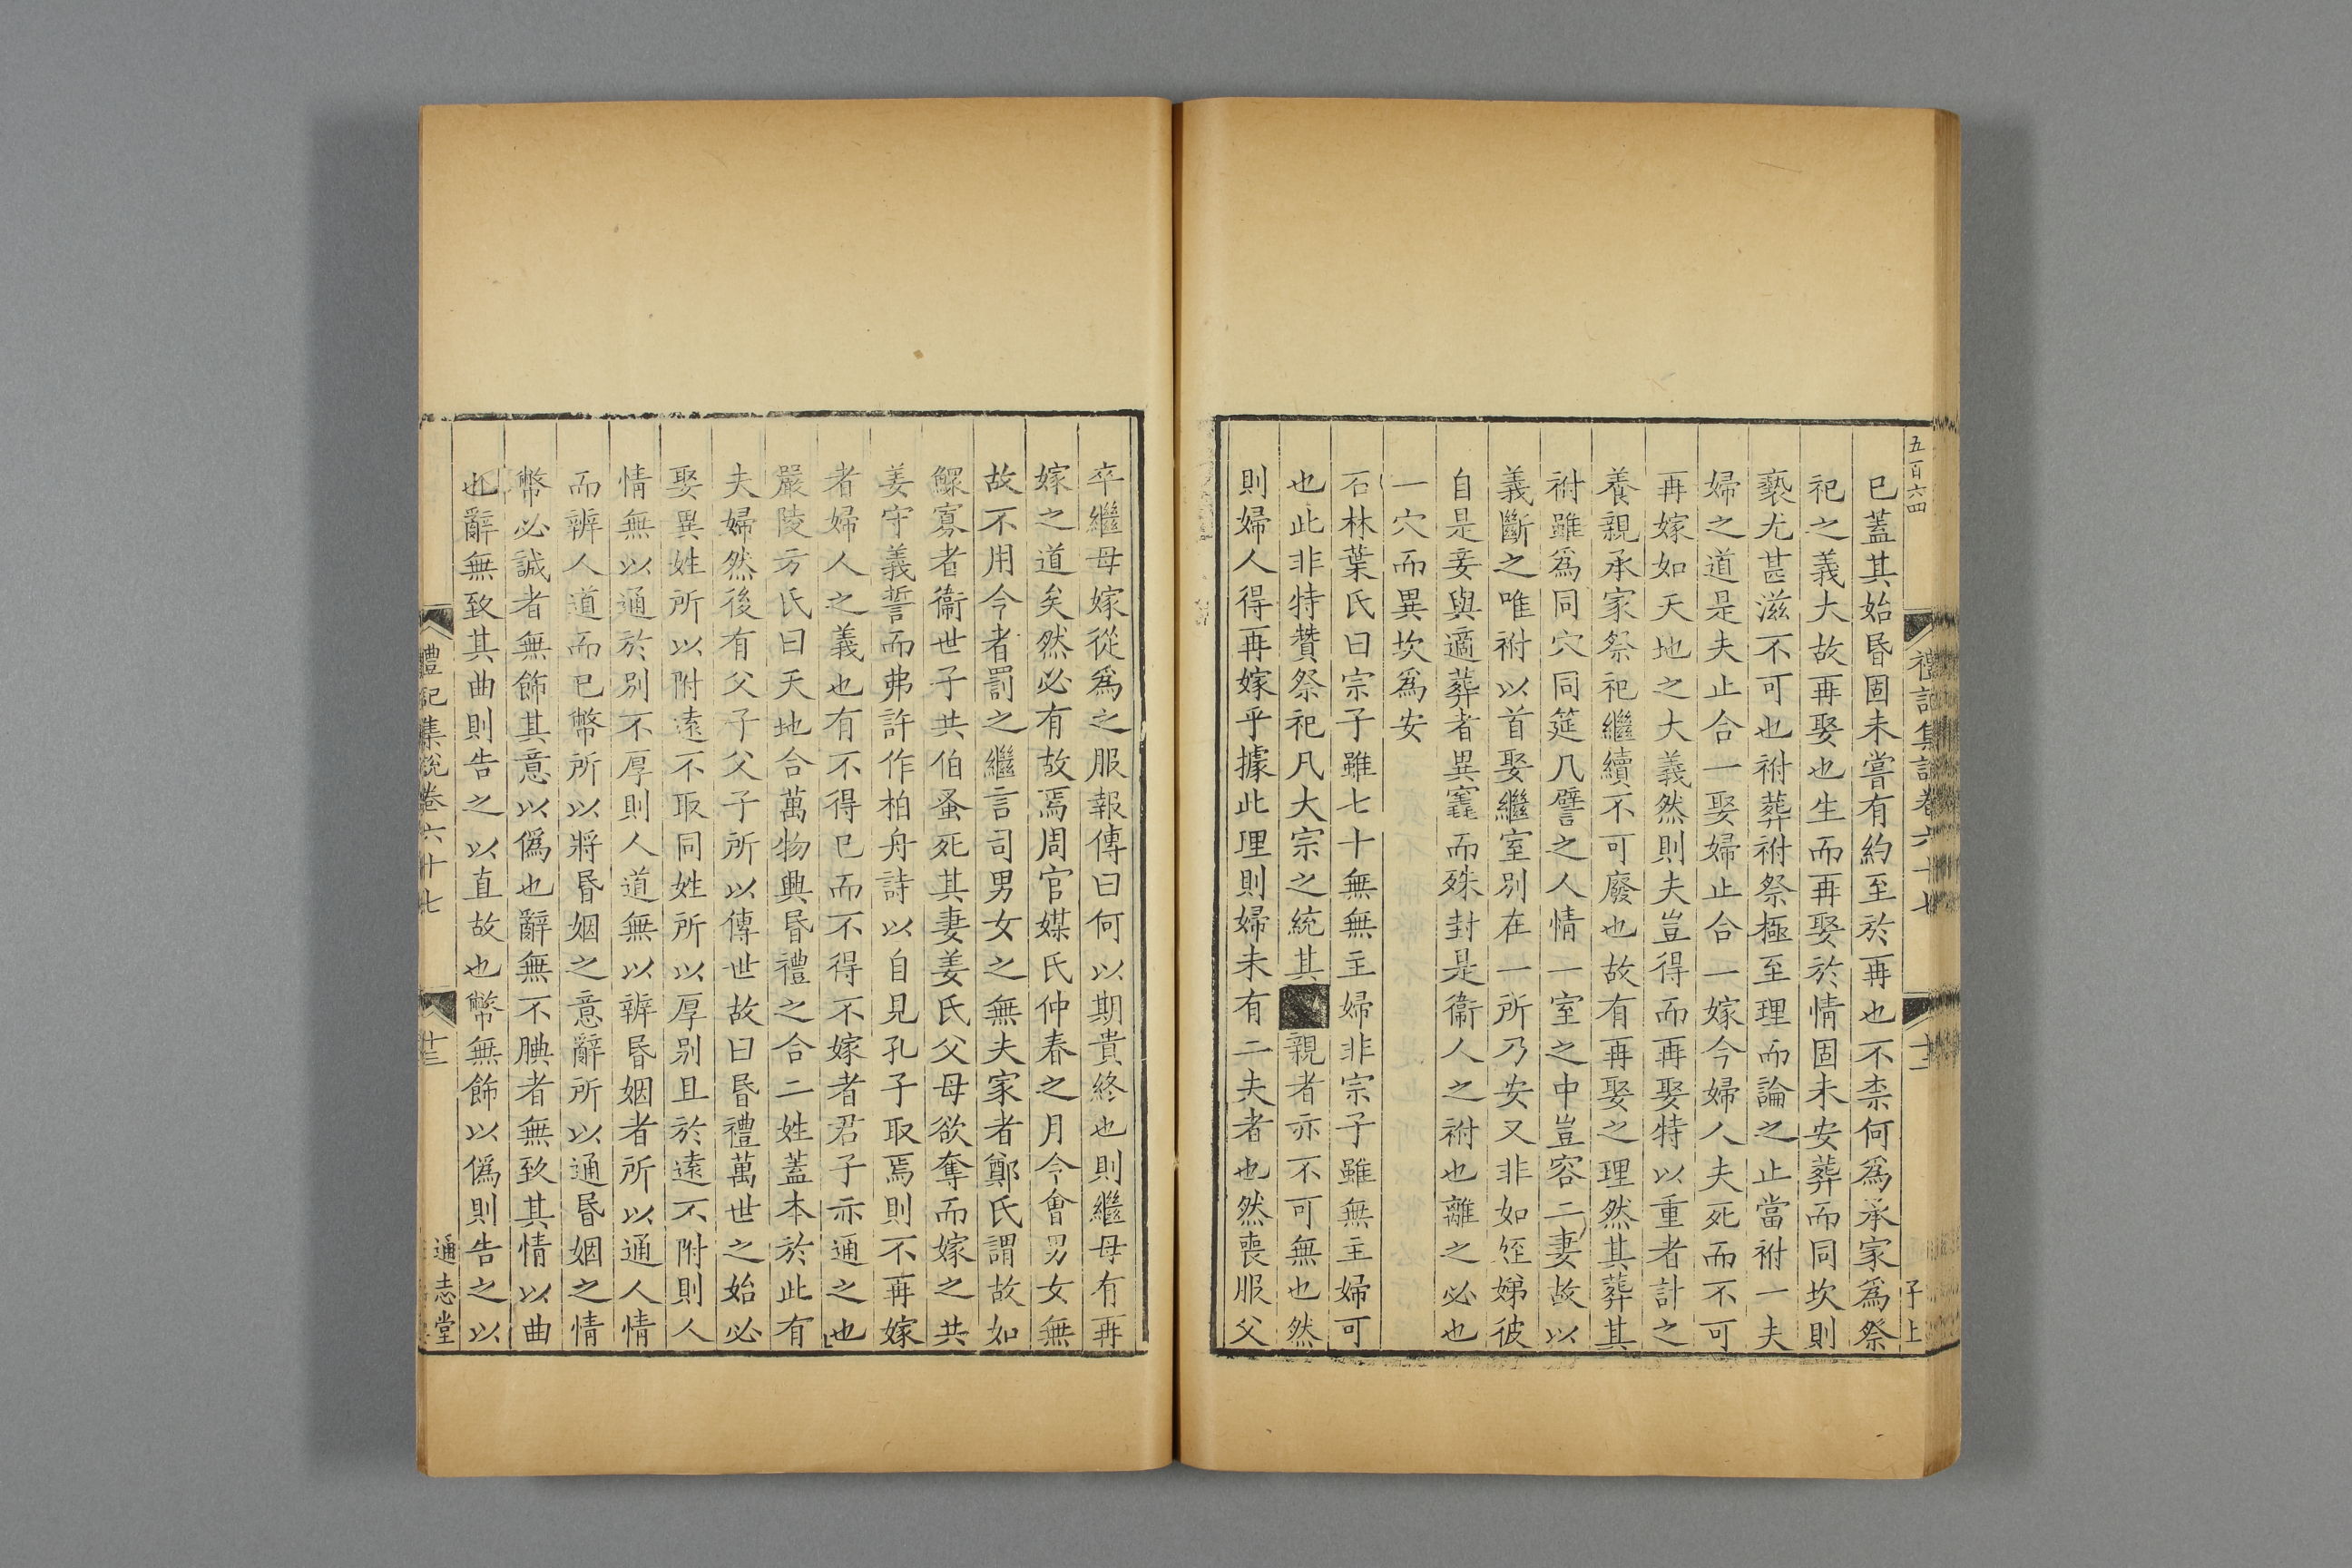 五百六四
禮記集說卷六十七
十二
子上
已蓋其始昏固未嘗有約至於再也不柰何爲承家爲祭
祀之義大故再娶也生而再娶於情固未安葬而同坎則
褻尤甚滋不可也祔葬祔祭極至理而論之止當祔一夫
婦之道是夫止合一娶婦止合一嫁今婦人夫死而不可
再嫁如天地之大義然則夫豈得而再娶特以重者計之
養親承家祭祀繼續不可廢也故有再娶之理然其葬其
祔雖爲同穴同筵几譬之人情一室之中豈容二妻故以
義斷之唯祔以首娶繼室别在一所乃安又非如姪娣彼
自是妾與適葬者異窆而殊封是衞人之祔也離之必也
一穴而異坎爲安
石林葉氏曰宗子雖七十無無主婦非宗子雖無主婦可
也此非特贊祭祀凡大宗之統其親者亦不可無也然
則婦人得再嫁乎據此理則婦未有二夫者也然喪服父
卒繼母嫁從爲之服報傳曰何以期貴終也則繼母有再
嫁之道矣然必有故焉周官媒氏仲春之月令會男女無
故不用令者罰之繼言司男女之無夫家者鄭氏謂故如
鰥寡者衞世子共伯蚤死其妻姜氏父母欲奪而嫁之共
姜守義誓而弗許作柏舟詩以自見孔子取焉則不再嫁
者婦人之義也有不得已而不得不嫁者君子亦通之也
嚴陵方氏曰天地合萬物興昏禮之合二姓蓋本於此有
夫婦然後有父子父子所以傳世故曰昏禮萬世之始必
娶異姓所以附遠不取同姓所以厚别且於遠不附則人
情無以通於别不厚則人道無以辨昏姻者所以通人情
而辨人道而已幣所以將昏姻之意辭所以通昏姻之情
幣必誠者無飾其意以僞也辭無不腆者無致其情以曲
也辭無致其曲則告之以直故也幣無飾以僞則告之以
禮記集說卷六十七
十三
通志堂